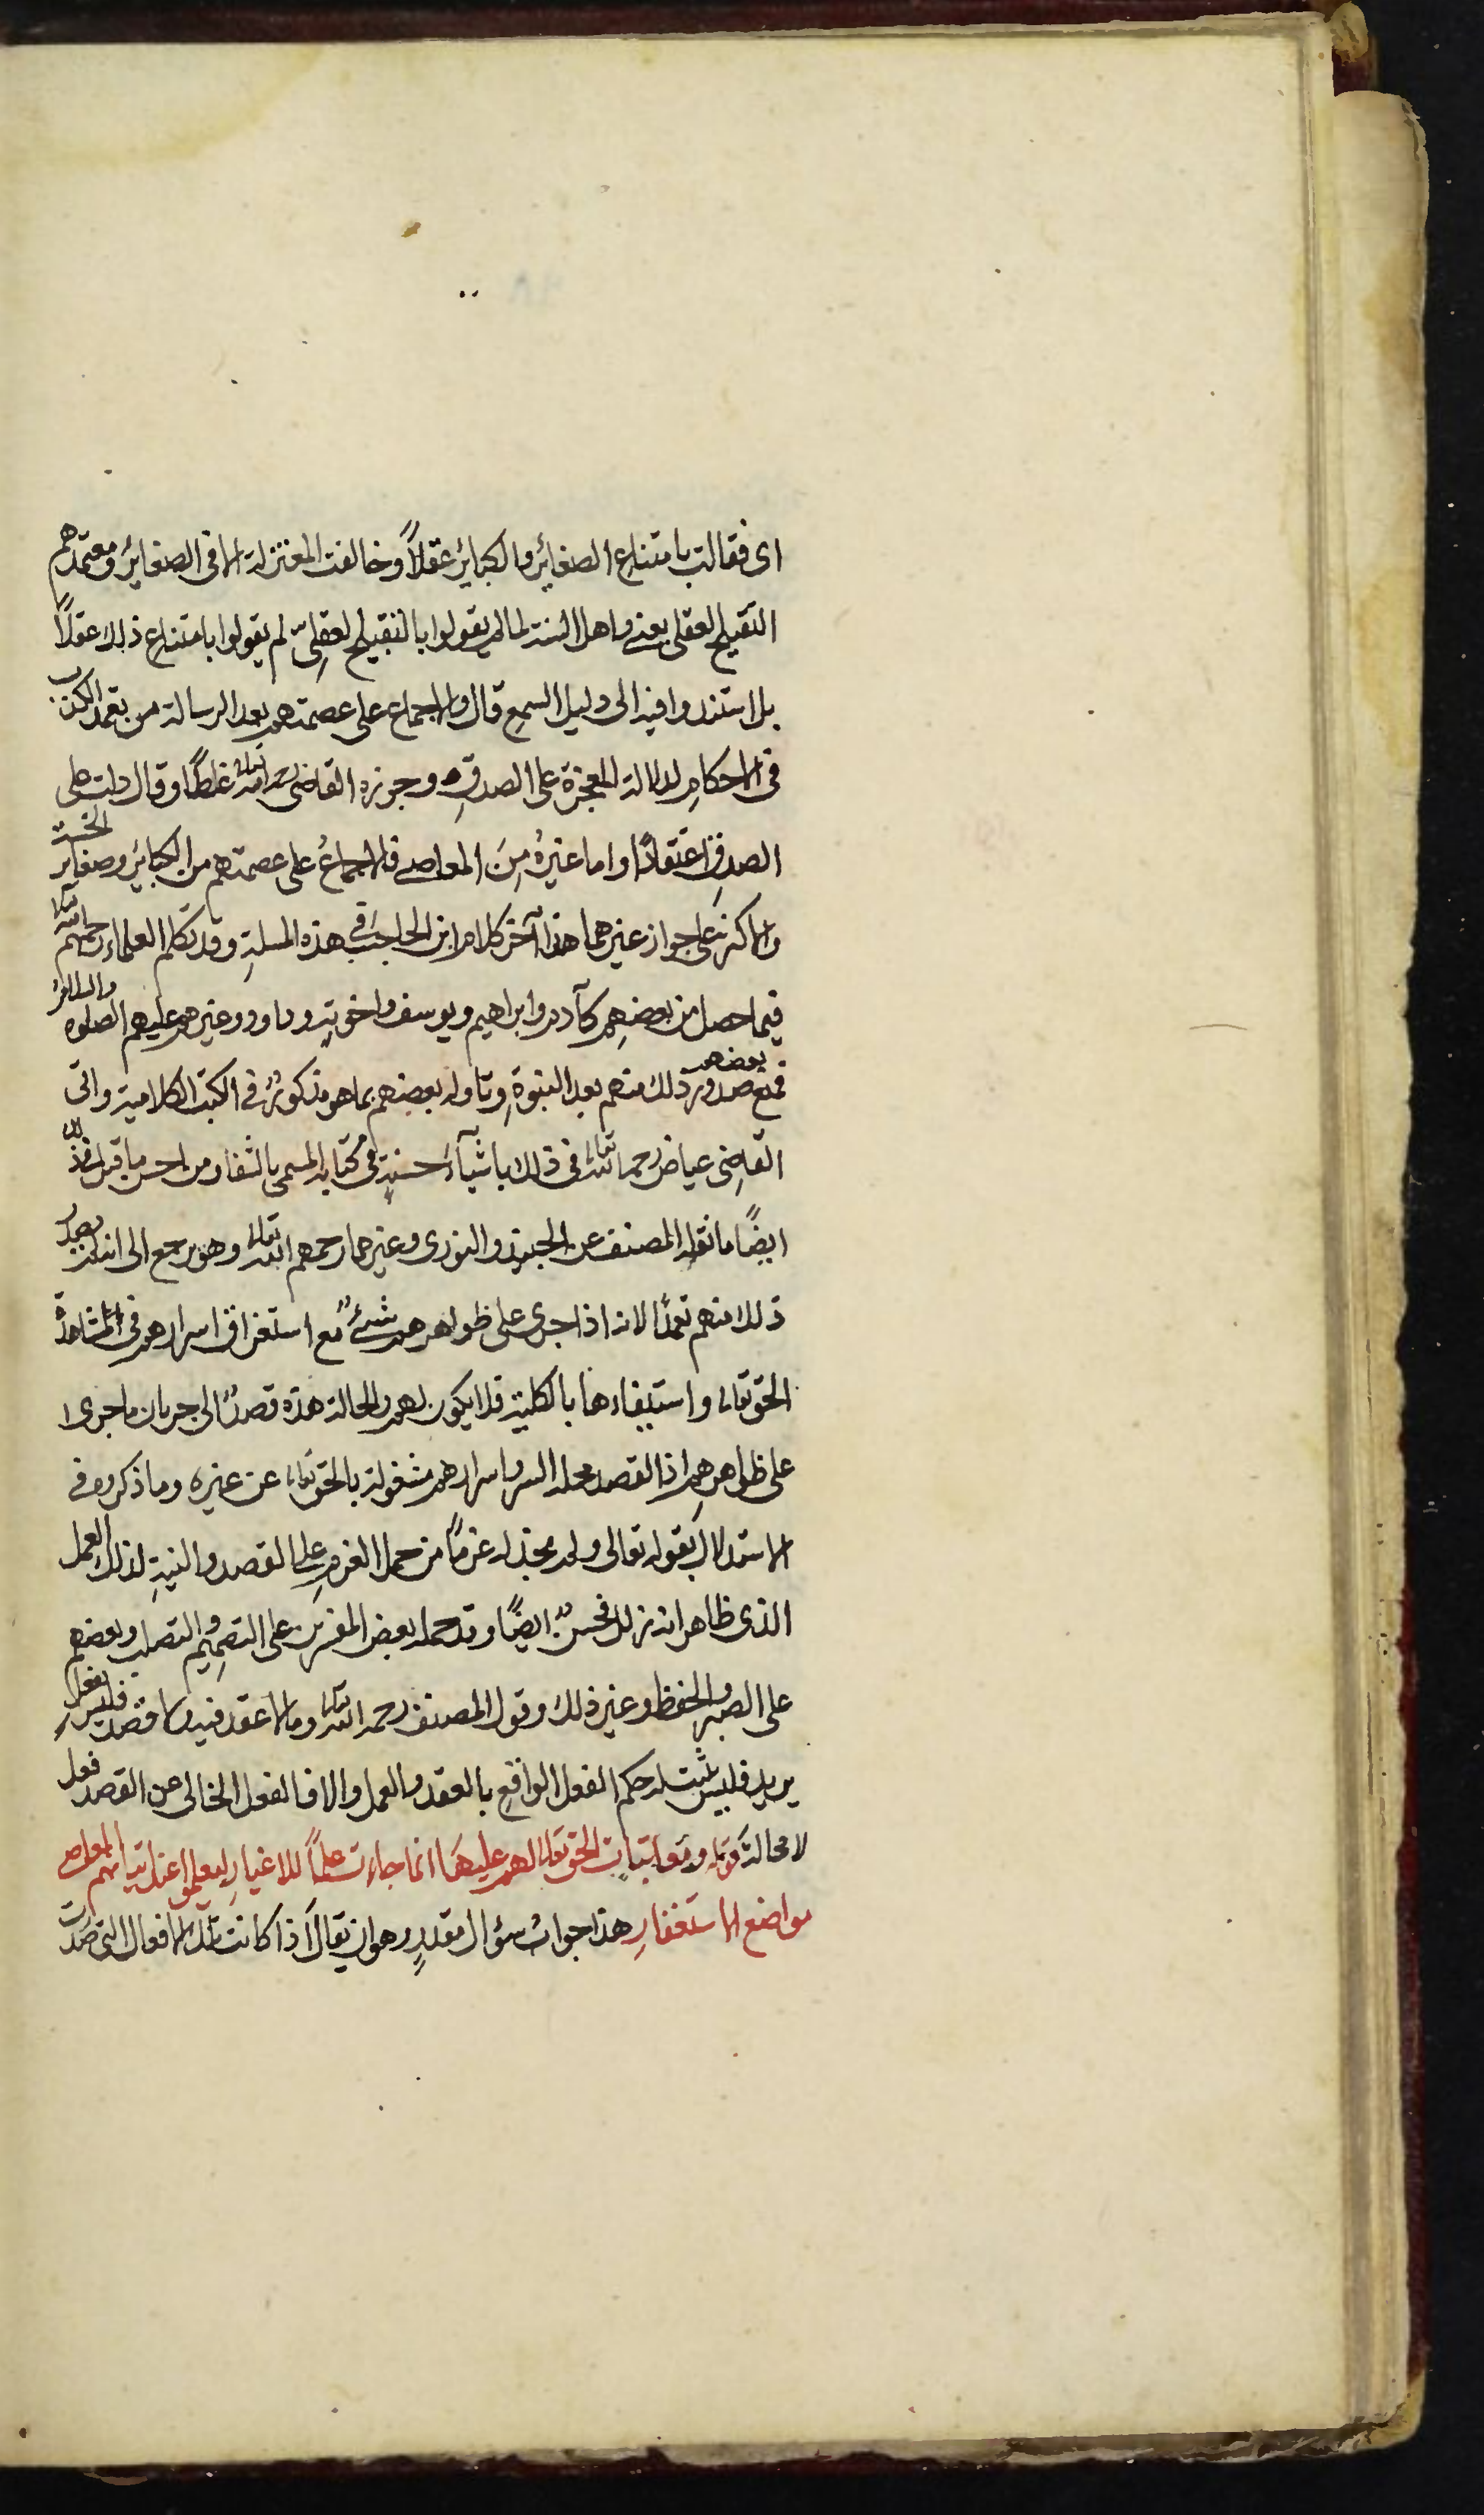 اى فقالت بامتناع الصغاير والكبائر عقلاً وخالفت المعتزلة الا فى الصغاير ومعتمدهم
التقبيح العقلى يعنى واهل السنة لما لم يقولوا بالتقبيح العقلىّ لم يقولوا بامتناع ذلك عقلاً
بل استندوا فيه الى دليل السمع قال والاجماع على عصمتهم بعد الرسالة من تعمد الكذب
فى الاحكام لدلالة المعجزة على الصدق وجوزه القاضى رحمه الله تعالى غلطًا وقال دلت على
الصدق اعتقادًا واما غيرُه مِنَ المعاصى فالاجماعُ على عصمتهم من الكبائر وصغاير الخسة
والاكثر على جواز غيرهما هذا آخر كلام ابن الحاجب فى هذه المسلة وقد تكلم العلماء رحمهم الله تعالى
فيما حصل من بعضهم كآدم وابراهيم ويوسف واخوته وداوود وغيرهم عليهم الصلوة والسلام
فمنع بعضهم صدور ذلك منهم بعد النبوة وتاوله بعضهم بما هو مذكورٌ فى الكتب الكلامية واتى
القاضى عياض رحمه الله تعالى فى ذلك باشيآء حسنةٍ فى كتابه المسمى بالشفاء ومن احسن ما قيل فى ذلك
ايضًا ما نقله المصنف عن الجنيد والنورى وغيرهما رحمهم الله تعالى وهو يرجع الى انه لم يصدر
ذلك منهم تعمدًا لانه اذا جرى على ظواهرهم شئٌ مع استغراق اسرارهم فى مشاهدة
الحق تعالى واستيفاءها بالكلية فلا يكون لهم والحالة هذه قصدٌ الى جريان ما جرى
على ظواهرهم اذ القصد محله السر واسرارهم مشغولة بالحق تعالى عن غيره وما ذكروه فى
الاستدلال بقوله تعالى ولم نجد له عزمًا من حمل العزم على القصد والنية لذلك العمل
الذى ظاهره انه زلل فحسنٌ ايضًا وقد حمله بعض المفسرين على التصميم والتصلب وبعضهم
على الصبر والحفظ وغير ذلك وقول المصنف رحمه الله تعالى وما لا عقد فيه ولا قصد فليس بفعلٍ
يريد فليس يثبت له حكم الفعل الواقع بالعقد والعمل والا فالفعل الخالى عن القصد فعل
لا محالة قوله ومعاتبات الحق تعالى لهم عليها انما جاءت علمًا للاغيار ليعلموا عند اتيانهم المعاصى
مواضع الاستغفار هذا جوابُ سؤال مقدرٍ وهو ان يقال اذا كانت تلك الافعال التى صدرت